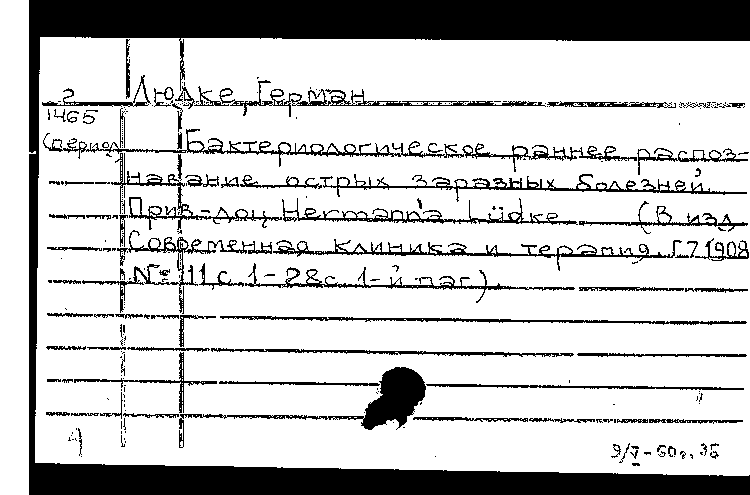 г Людке, Герман
1465
(период) Бактериологическое раннее распоз-
навание острых заразных болезней.
Прив-доц Hermann'a Lüdke (В изд
Современная клиника и терапия. Г.7 1908
№ 11, с. 1-28с 1-й паг).
9/V-60г. 36